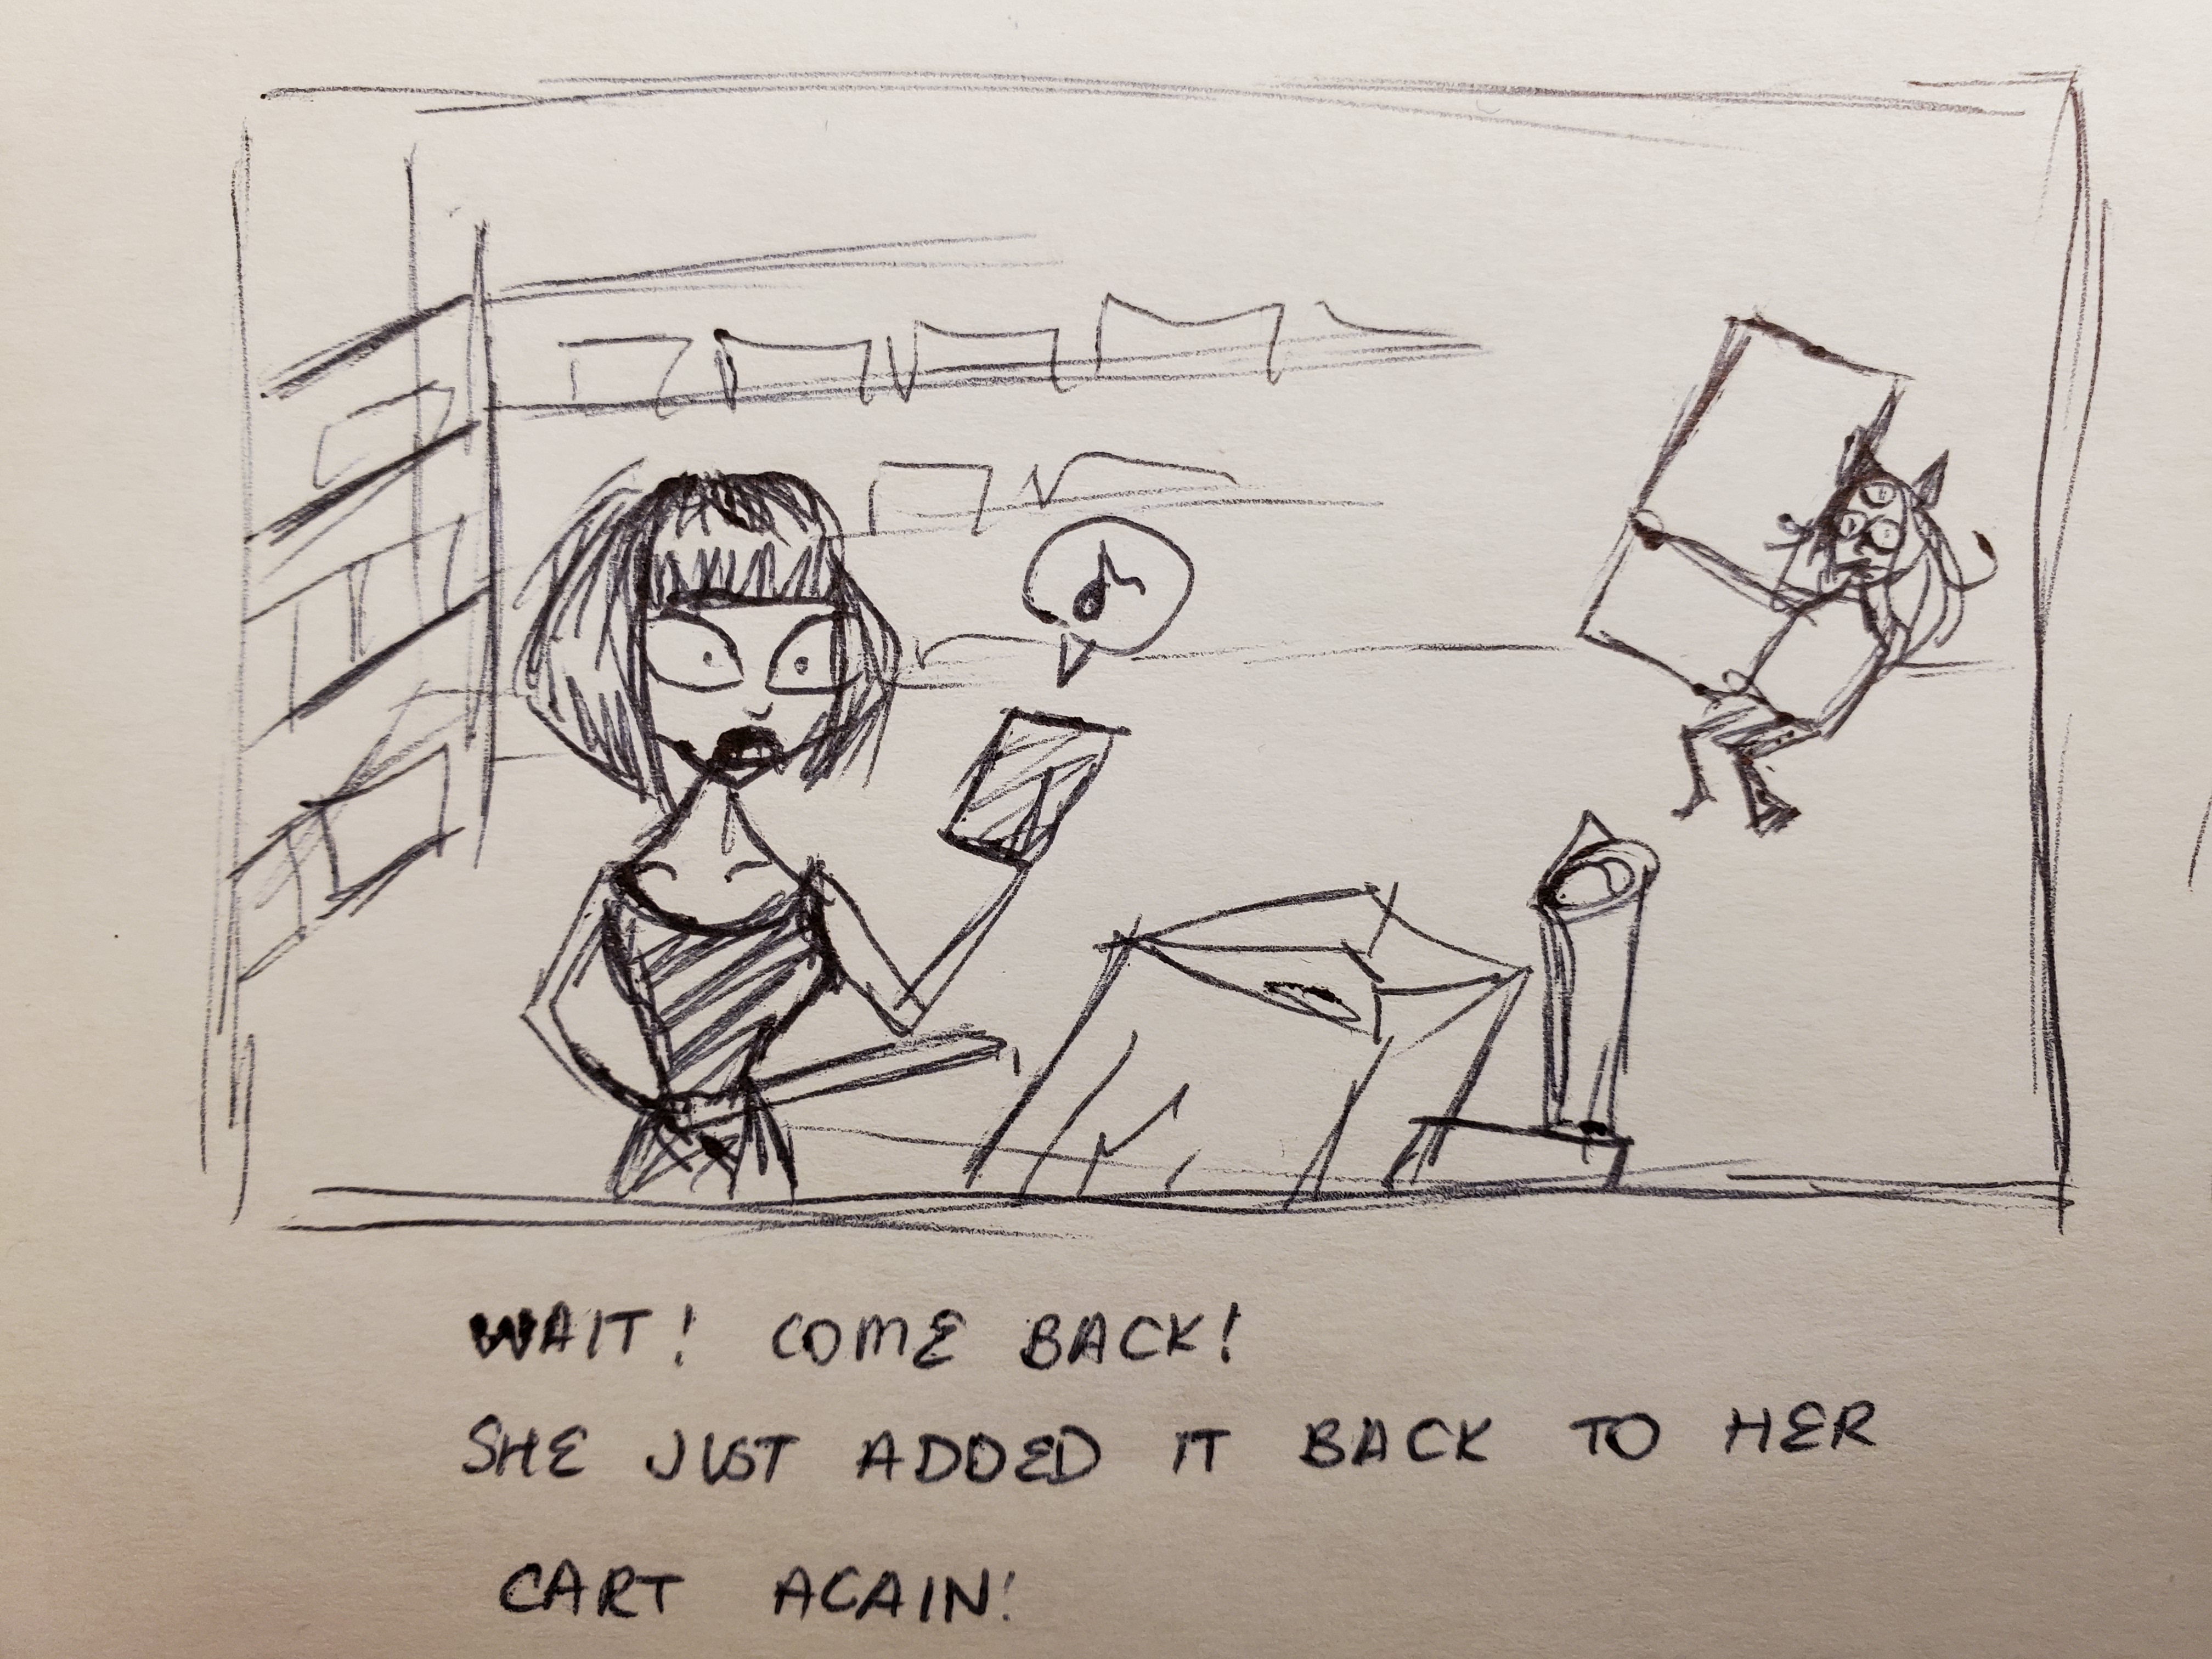 WAIT! COME BACK!
SHE JUST ADDED IT BACK TO HER
CART AGAIN!